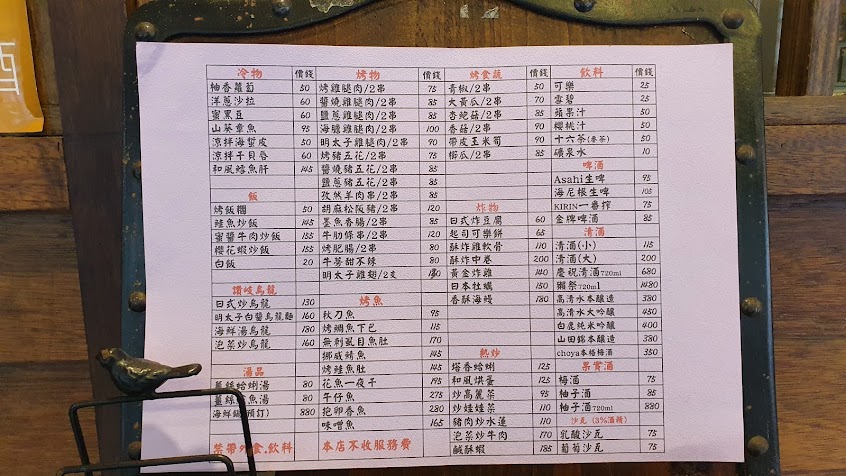 冷物 價錢
柚香蘿蔔 50
洋蔥沙拉 60
蜜黑豆 60
山葵章魚 95
涼拌海蜇皮 50
涼拌干貝唇 60
和風鱈魚肝 145
飯
烤飯糰 50
鮭魚炒飯 145
蜜醬牛肉炒飯 155
櫻花蝦炒飯 155
白飯 20
讚岐烏龍
日式炒烏龍 130
明太子白醬烏龍麵 160
海鮮湯烏龍 180
泡菜炒烏龍 160
湯品
薑絲蛤蜊湯 80
薑絲魚湯 80
海鮮鍋(預訂) 880
禁帶外食.飲料
烤物 價錢
烤雞腿肉/2串 75
醬燒雞腿肉/2串 85
鹽蔥雞腿肉/2串 85
海膽雞腿肉/2串 100
明太子雞腿肉/2串 90
烤豬五花/2串 75
醬燒豬五花/2串 85
鹽蔥豬五花/2串 85
孜然羊肉串/2串 85
胡麻松阪豬/2串 120
墨魚香腸/2串 85
牛肋條串/2串 120
烤肥腸/2串 80
牛蒡甜不辣 80
明太子雞翅/2支
烤魚
秋刀魚 95
烤鯛魚下巴 115
無刺虱目魚肚 170
挪威鯖魚 145
烤鮭魚肚 145
花魚一夜干 195
午仔魚 275
抱卵香魚 280
味噌魚 165
本店不收服務費
烤食蔬 價錢
青椒/2串 85
大黃瓜/2串 70
杏鮑菇/2串 85
香菇/2串 90
帶皮玉米筍 90
櫛瓜/2串 85
炸物
日式炸豆腐 60
起司可樂餅 65
酥炸雞軟骨 110
酥炸中卷 200
黃金炸雞 140
日本牡蠣 150
香酥海鰻 180
熱炒
塔香蛤蜊 125
和風烘蛋 125
炒高麗菜 110
炒娃娃菜 110
豬肉炒水蓮 110
泡菜炒牛肉 170
鹹酥蝦 185
飲料 價錢
可樂 25
雪碧 25
蘋果汁 50
櫻桃汁 50
十六茶(麥茶) 50
礦泉水 10
啤酒
Asahi生啤 95
海尼根生啤 105
KIRIN一番搾 75
金牌啤酒 85
清酒
清酒(小) 115
清酒(大) 200
慶祝清酒720ml 680
獺祭720ml 1480
高清水本釀造 380
高清水大吟釀 450
白鹿純米吟釀 400
山田錦本釀造 380
choya本格梅酒 350
果實酒
梅酒 75
柚子酒 85
柚子酒720ml 880
沙瓦 (3%酒精)
乳酸沙瓦 75
葡萄沙瓦 75
酒